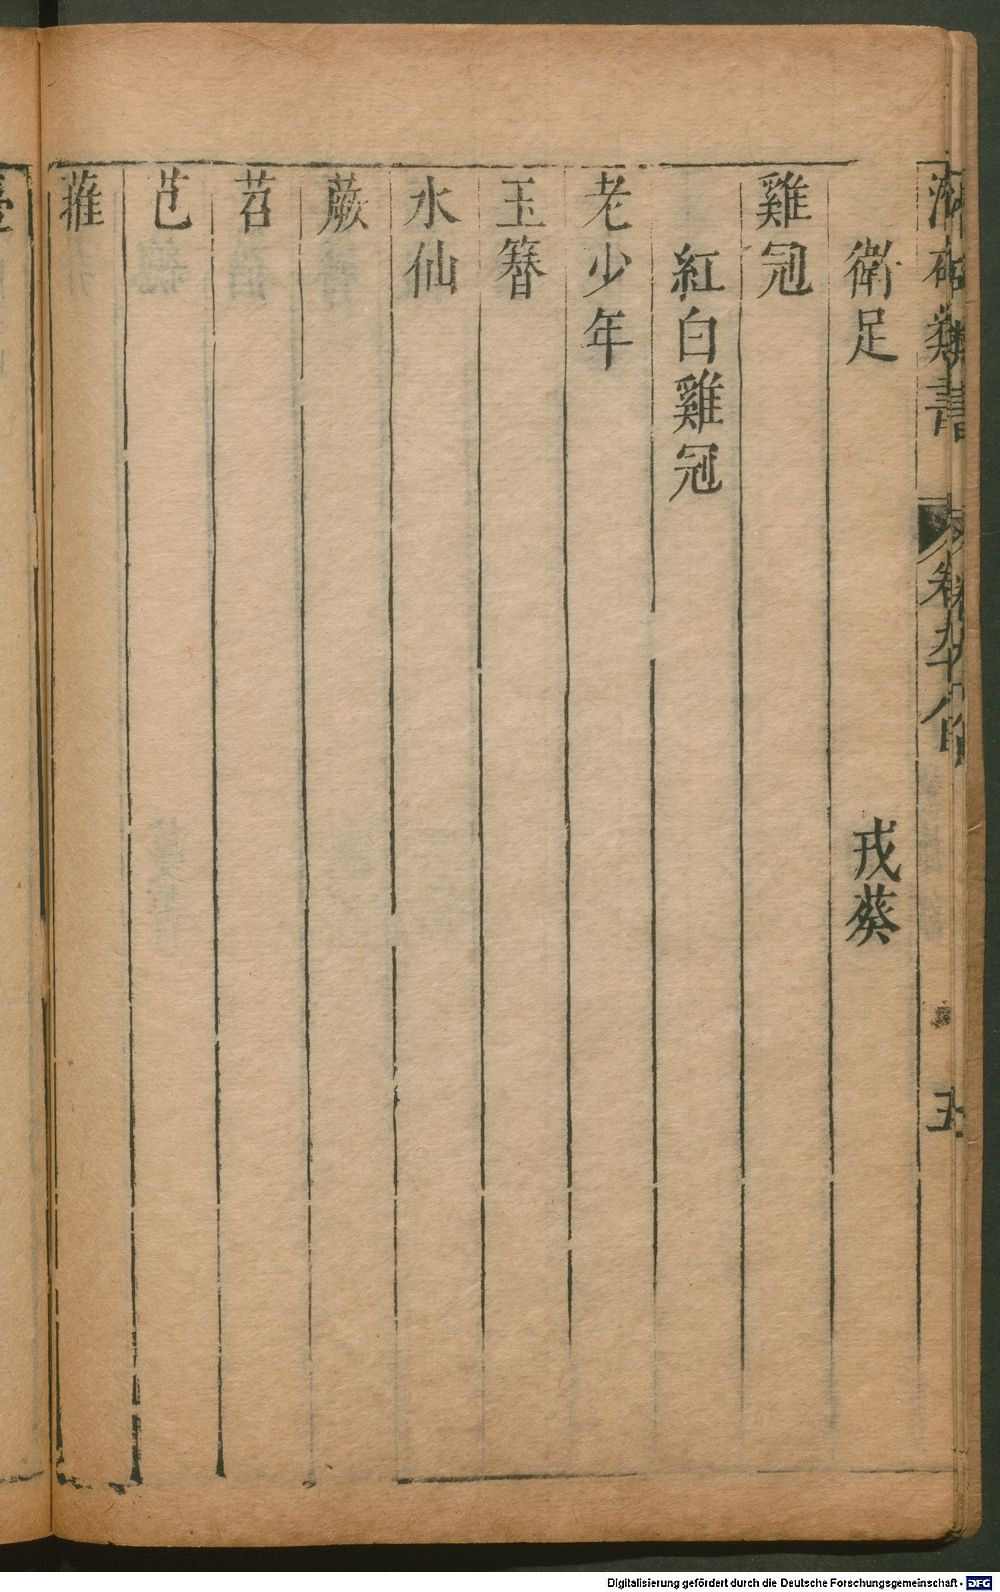 衛足　戎葵
雞冠
紅白雞冠
老少年
玉簪
水仙
蕨
苕
芑
蓷
Digitalisierung gefördert durch die Deutsche Forschungsgemeinschaft - DFG